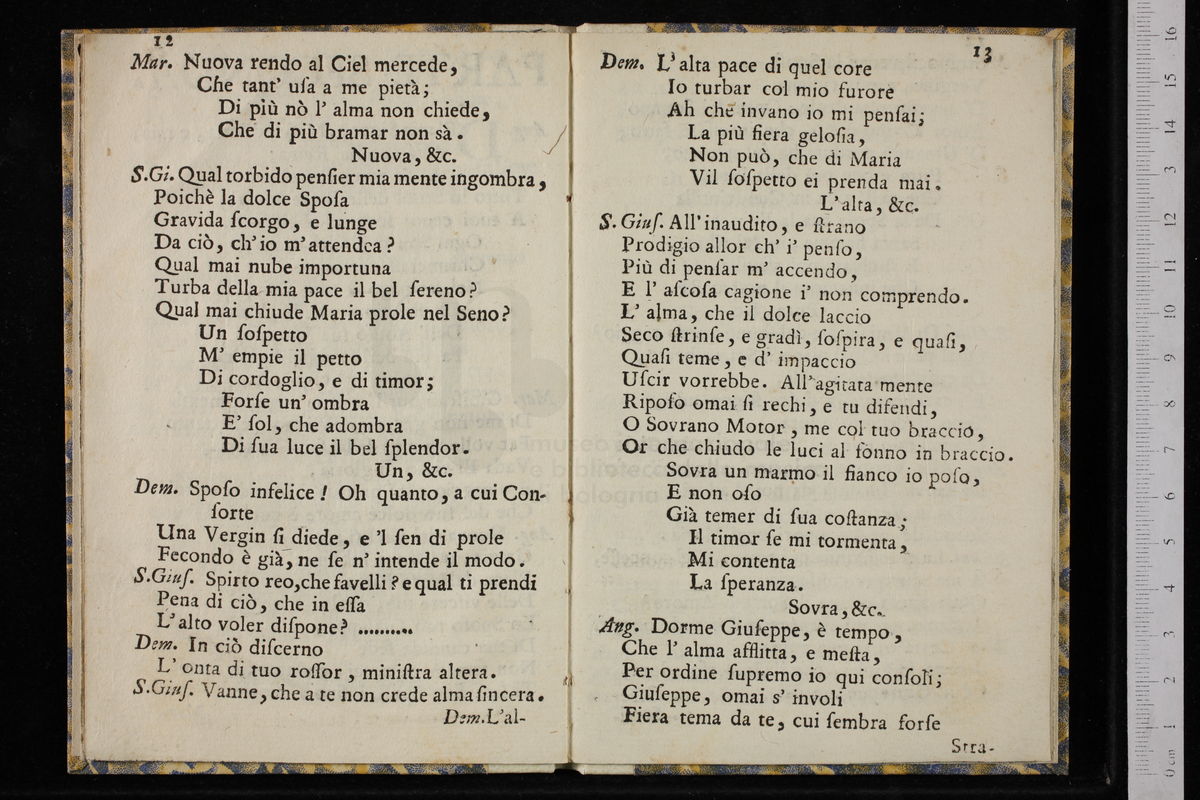 12
Mar. Nuova rendo al Ciel mercede,
Che tant' uſa a me pietà;
Di più nò l' alma non chiede,
Che di più bramar non sà.
Nuova, &c.
S.Gi. Qual torbido penſier mia mente ingombra,
Poichè la dolce Spoſa
Gravida ſcorgo, e lunge
Da ciò, ch' io m' attendea?
Qual mai nube importuna
Turba della mia pace il bel ſereno?
Qual mai chiude Maria prole nel Seno?
Un ſoſpetto
M' empie il petto
Di cordoglio, e di timor;
Forſe un' ombra
E' ſol, che adombra
Di ſua luce il bel ſplendor.
Un, &c.
Dem. Spoſo infelice! Oh quanto, a cui Con-
ſorte
Una Vergin ſi diede, e 'l ſen di prole
Fecondo è già, ne ſe n' intende il modo.
S.Giuſ. Spirto reo, che favelli? e qual ti prendi
Pena di ciò, che in eſſa
L' alto voler diſpone? ..........
Dem. In ciò diſcerno
L' onta di tuo roſſor, miniſtra altera.
S.Giuſ. Vanne, che a te non crede alma ſincera.
Dem. L'al-
13
Dem. L' alta pace di quel core
Io turbar col mio furore
Ah che invano io mi penſai;
La più fiera geloſia,
Non può, che di Maria
Vil ſoſpetto ei prenda mai.
L' alta, &c.
S. Giuſ. All' inaudito, e ſtrano
Prodigio allor ch' i' penſo,
Più di penſar m' accendo,
E l' aſcoſa cagione i' non comprendo.
L' alma, che il dolce laccio
Seco ſtrinſe, e gradì, ſoſpira, e quaſi,
Quaſi teme, e d' impaccio
Uſcir vorrebbe. All' agitata mente
Ripoſo omai ſi rechi, e tu difendi,
O Sovrano Motor, me col tuo braccio,
Or che chiudo le luci al ſonno in braccio.
Sovra un marmo il fianco io poſo,
E non oſo
Già temer di ſua coſtanza;
Il timor ſe mi tormenta,
Mi contenta
La ſperanza.
Sovra, &c.
Ang. Dorme Giuſeppe, è tempo,
Che l' alma afflitta, e meſta,
Per ordine ſupremo io qui conſoli;
Giuſeppe, omai s' involi
Fiera tema da te, cui ſembra forſe
Stra-